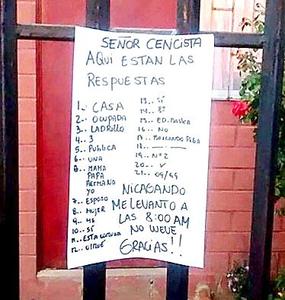 SEÑOR CENCISTA
AQUI ESTAN LAS
RESPUESTAS
1.. CASA
2.. OCUPADA
3.. LADRILLO
4.. 3
5.. PUBLICA
6.. UNA
8.. MAMA
PAPA
HERMANO
YO
7.. ESPOSO
8.. MUJER
9.. 45
10.. SÍ
11.. ESTA COMUNA
12.. CHILE
13.. SÍ
14.. 8º
15.. ED. BASICA
16.. NO
17.. BUSCANDO PEGA
18.. — —
19.. Nº 2
20.. ✓
21.. 09/69
NICAGANDO
ME LEVANTO A
LAS 8:00 AM
NO WEVE
GRACIAS!!